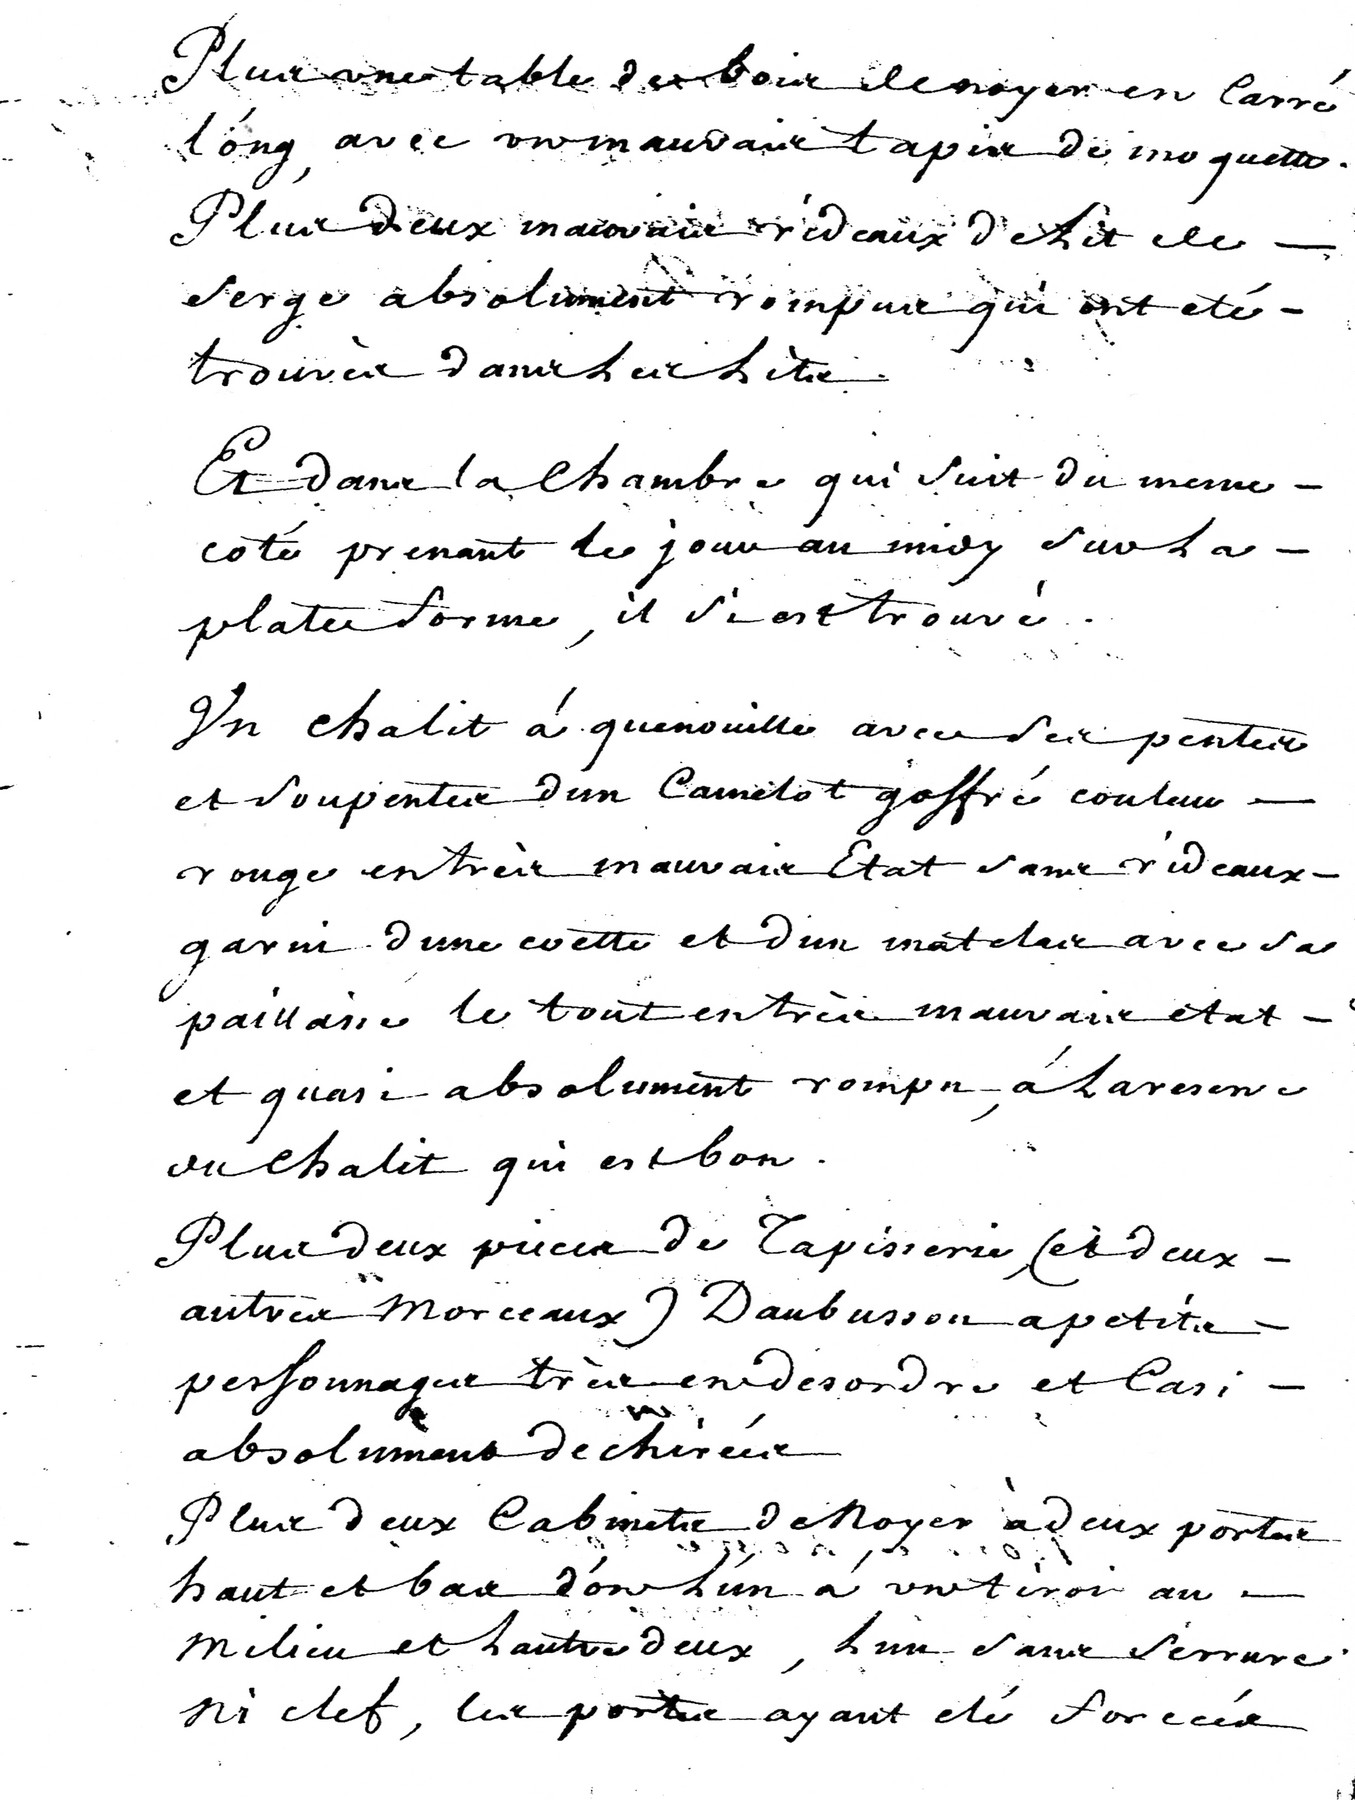 Plus une table de bois de noyer en Carré
lóng, avec un mauvais tapis de moquette.
Plus deux mauvais rideaux de lit de —
serge absolument rompus qui ont eté –
trouvés dans les lits.
Et dans la Chambre qui suit du meme –
coté prenant le jour au midy sur la –
platte forme, il s'est trouvé.
Un chalit á quenouille avec ses pentes
et soupentes dun Camelot goffré couleur —
rouge en très mauvais Etat sans rideaux –
garni dune coette et dun matelas avec sa
paillasse le tout en très mauvais etat –
et quasi absolument rompu, á la reserve
du Chalit qui est bon.
Plus deux pieces de Tapisserie, (et deux –
autres Morceaux) Daubusson a petits –
personnages très en desordre et Casi –
absolument dechirées
Plus deux Cabinets de Noyer à deux portes
haut et bas dón lún á un tiroir au —
Milieu et lautre deux, lun sans serrure
ni clef, les portes ayant eté forcées